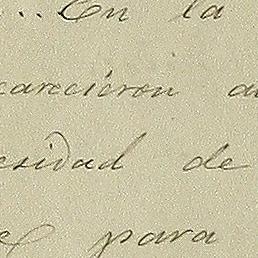 ..En la
carecieron a
esidad de
e para